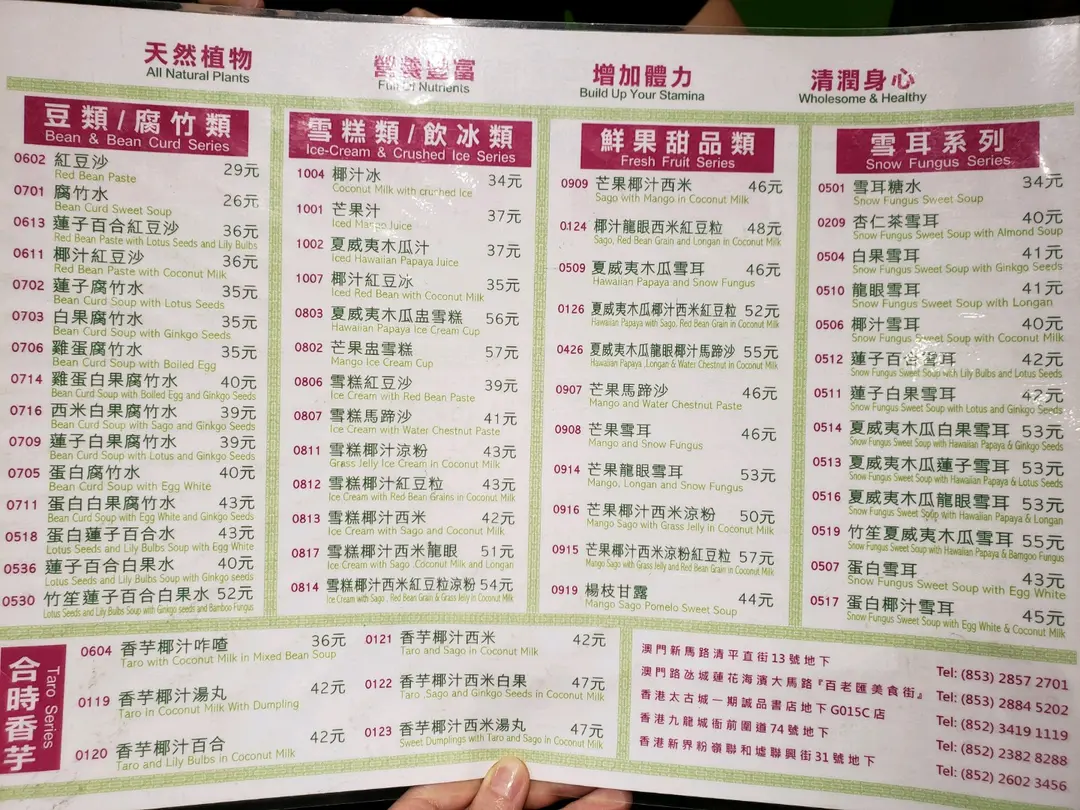 天然植物
All Natural Plants
營養豐富
Full Of Nutrients
增加體力
Build Up Your Stamina
清潤身心
Wholesome & Healthy
豆類/腐竹類
Bean & Bean Curd Series
0602 紅豆沙 29元
Red Bean Paste
0701 腐竹水 26元
Bean Curd Sweet Soup
0613 蓮子百合紅豆沙 36元
Red Bean Paste with Lotus Seeds and Lily Bulbs
0611 椰汁紅豆沙 36元
Red Bean Paste with Coconut Milk
0702 蓮子腐竹水 35元
Bean Curd Soup with Lotus Seeds
0703 白果腐竹水 35元
Bean Curd Soup with Ginkgo Seeds
0706 雞蛋腐竹水 35元
Bean Curd Soup with Boiled Egg
0714 雞蛋白果腐竹水 40元
Bean Curd Soup with Boiled Egg and Ginkgo Seeds
0716 西米白果腐竹水 39元
Bean Curd Soup with Sago and Ginkgo Seeds
0709 蓮子白果腐竹水 39元
Bean Curd Soup with Lotus and Ginkgo Seeds
0705 蛋白腐竹水 40元
Bean Curd Soup with Egg White
0711 蛋白白果腐竹水 43元
Bean Curd Soup with Egg White and Ginkgo Seeds
0518 蛋白蓮子百合水 43元
Lotus Seeds and Lily Bulbs Soup With Egg White
0536 蓮子百合白果水 40元
Lotus Seeds and Lily Bulbs Soup with Ginkgo seeds
0530 竹笙蓮子百合白果水 52元
Lotus Seeds and Lily Bulbs Soup with Ginkgo seeds and Bamboo Fungus
雪糕類/飲冰類
Ice-Cream & Crushed Ice Series
1004 椰汁冰 34元
Coconut Milk with crushed Ice
1001 芒果汁 37元
Iced Mango Juice
1002 夏威夷木瓜汁 37元
Iced Hawaiian Papaya Juice
1007 椰汁紅豆冰 35元
Iced Red Bean with Coconut Milk
0803 夏威夷木瓜盅雪糕 56元
Hawaiian Papaya Ice Cream Cup
0802 芒果盅雪糕 57元
Mango Ice Cream Cup
0806 雪糕紅豆沙 39元
Ice Cream with Red Bean Paste
0807 雪糕馬蹄沙 41元
Ice Cream with Water Chestnut Paste
0811 雪糕椰汁涼粉 43元
Grass Jelly Ice Cream in Coconut Milk
0812 雪糕椰汁紅豆粒 43元
Ice Cream with Red Bean Grains in Coconut Milk
0813 雪糕椰汁西米 42元
Ice Cream with Sago and Coconut Milk
0817 雪糕椰汁西米龍眼 51元
Ice Cream with Sago .Coconut Milk and Longan
0814 雪糕椰汁西米紅豆粒涼粉 54元
Ice Cream with Sago . Red Bean Grain & Grass Jelly in Coconut Milk
鮮果甜品類
Fresh Fruit Series
0909 芒果椰汁西米 46元
Sago with Mango in Coconut Milk
0124 椰汁龍眼西米紅豆粒 48元
Sago, Red Bean Grain and Longan in Coconut Milk
0509 夏威夷木瓜雪耳 46元
Hawaiian Papaya and Snow Fungus
0126 夏威夷木瓜椰汁西米紅豆粒 52元
Hawaiian Papaya with Sago, Red Bean Grain in Coconut Milk
0426 夏威夷木瓜龍眼椰汁馬蹄沙 55元
Hawaiian Papaya ,Longan & Water Chestnut in Coconut Milk
0907 芒果馬蹄沙 46元
Mango and Water Chestnut Paste
0908 芒果雪耳 46元
Mango and Snow Fungus
0914 芒果龍眼雪耳 53元
Mango, Longan and Snow Fungus
0916 芒果椰汁西米涼粉 50元
Mango Sago with Grass Jelly in Coconut Milk
0915 芒果椰汁西米涼粉紅豆粒 57元
Mango Sago with Grass Jelly and Red Bean Grain in Coconut Milk
0919 楊枝甘露 44元
Mango Sago Pomelo Sweet Soup
雪耳系列
Snow Fungus Series
0501 雪耳糖水 34元
Snow Fungus Sweet Soup
0209 杏仁茶雪耳 40元
Snow Fungus Sweet Soup with Almond Soup
0504 白果雪耳 41元
Snow Fungus Sweet Soup with Ginkgo Seeds
0510 龍眼雪耳 41元
Snow Fungus Sweet Soup with Longan
0506 椰汁雪耳 40元
Snow Fungus Sweet Soup with Coconut Milk
0512 蓮子百合雪耳 42元
Snow Fungus Sweet Soup with Lily Bulbs and Lotus Seeds
0511 蓮子白果雪耳 42元
Snow Fungus Sweet Soup with Lotus and Ginkgo Seeds
0514 夏威夷木瓜白果雪耳 53元
Snow Fungus Sweet Soup with Hawaiian Papaya & Ginkgo Seeds
0513 夏威夷木瓜蓮子雪耳 53元
Snow Fungus Sweet Soup with Hawaiian Papaya & Lotus Seeds
0516 夏威夷木瓜龍眼雪耳 53元
Snow Fungus Sweet Soup with Hawaiian Papaya & Longan
0519 竹笙夏威夷木瓜雪耳 55元
Snow Fungus Sweet Soup with Hawaiian Papaya & Bamgoo Fungus
0507 蛋白雪耳 43元
Snow Fungus Sweet Soup with Egg White
0517 蛋白椰汁雪耳 45元
Snow Fungus Sweet Soup with Egg White & Coconut Milk
合時香芋
Taro Series
0604 香芋椰汁咋喳 36元
Taro with Coconut Milk in Mixed Bean Soup
0119 香芋椰汁湯丸 42元
Taro in Coconut Milk With Dumpling
0120 香芋椰汁百合 42元
Taro and Lily Bulbs in Coconut Milk
0121 香芋椰汁西米 42元
Taro and Sago in Coconut Milk
0122 香芋椰汁西米白果 47元
Taro .Sago and Ginkgo Seeds in Coconut Milk
0123 香芋椰汁西米湯丸 47元
Sweet Dumplings with Taro and Sago in Coconut Milk
澳門新馬路清平直街13號地下 Tel: (853) 2857 2701
澳門路氹城蓮花海濱大馬路『百老匯美食街』 Tel: (853) 2884 5202
香港太古城一期誠品書店地下G015C店 Tel: (852) 3419 1119
香港九龍城衙前圍道74號地下 Tel: (852) 2382 8288
香港新界粉嶺聯和墟聯興街31號地下 Tel: (852) 2602 3456